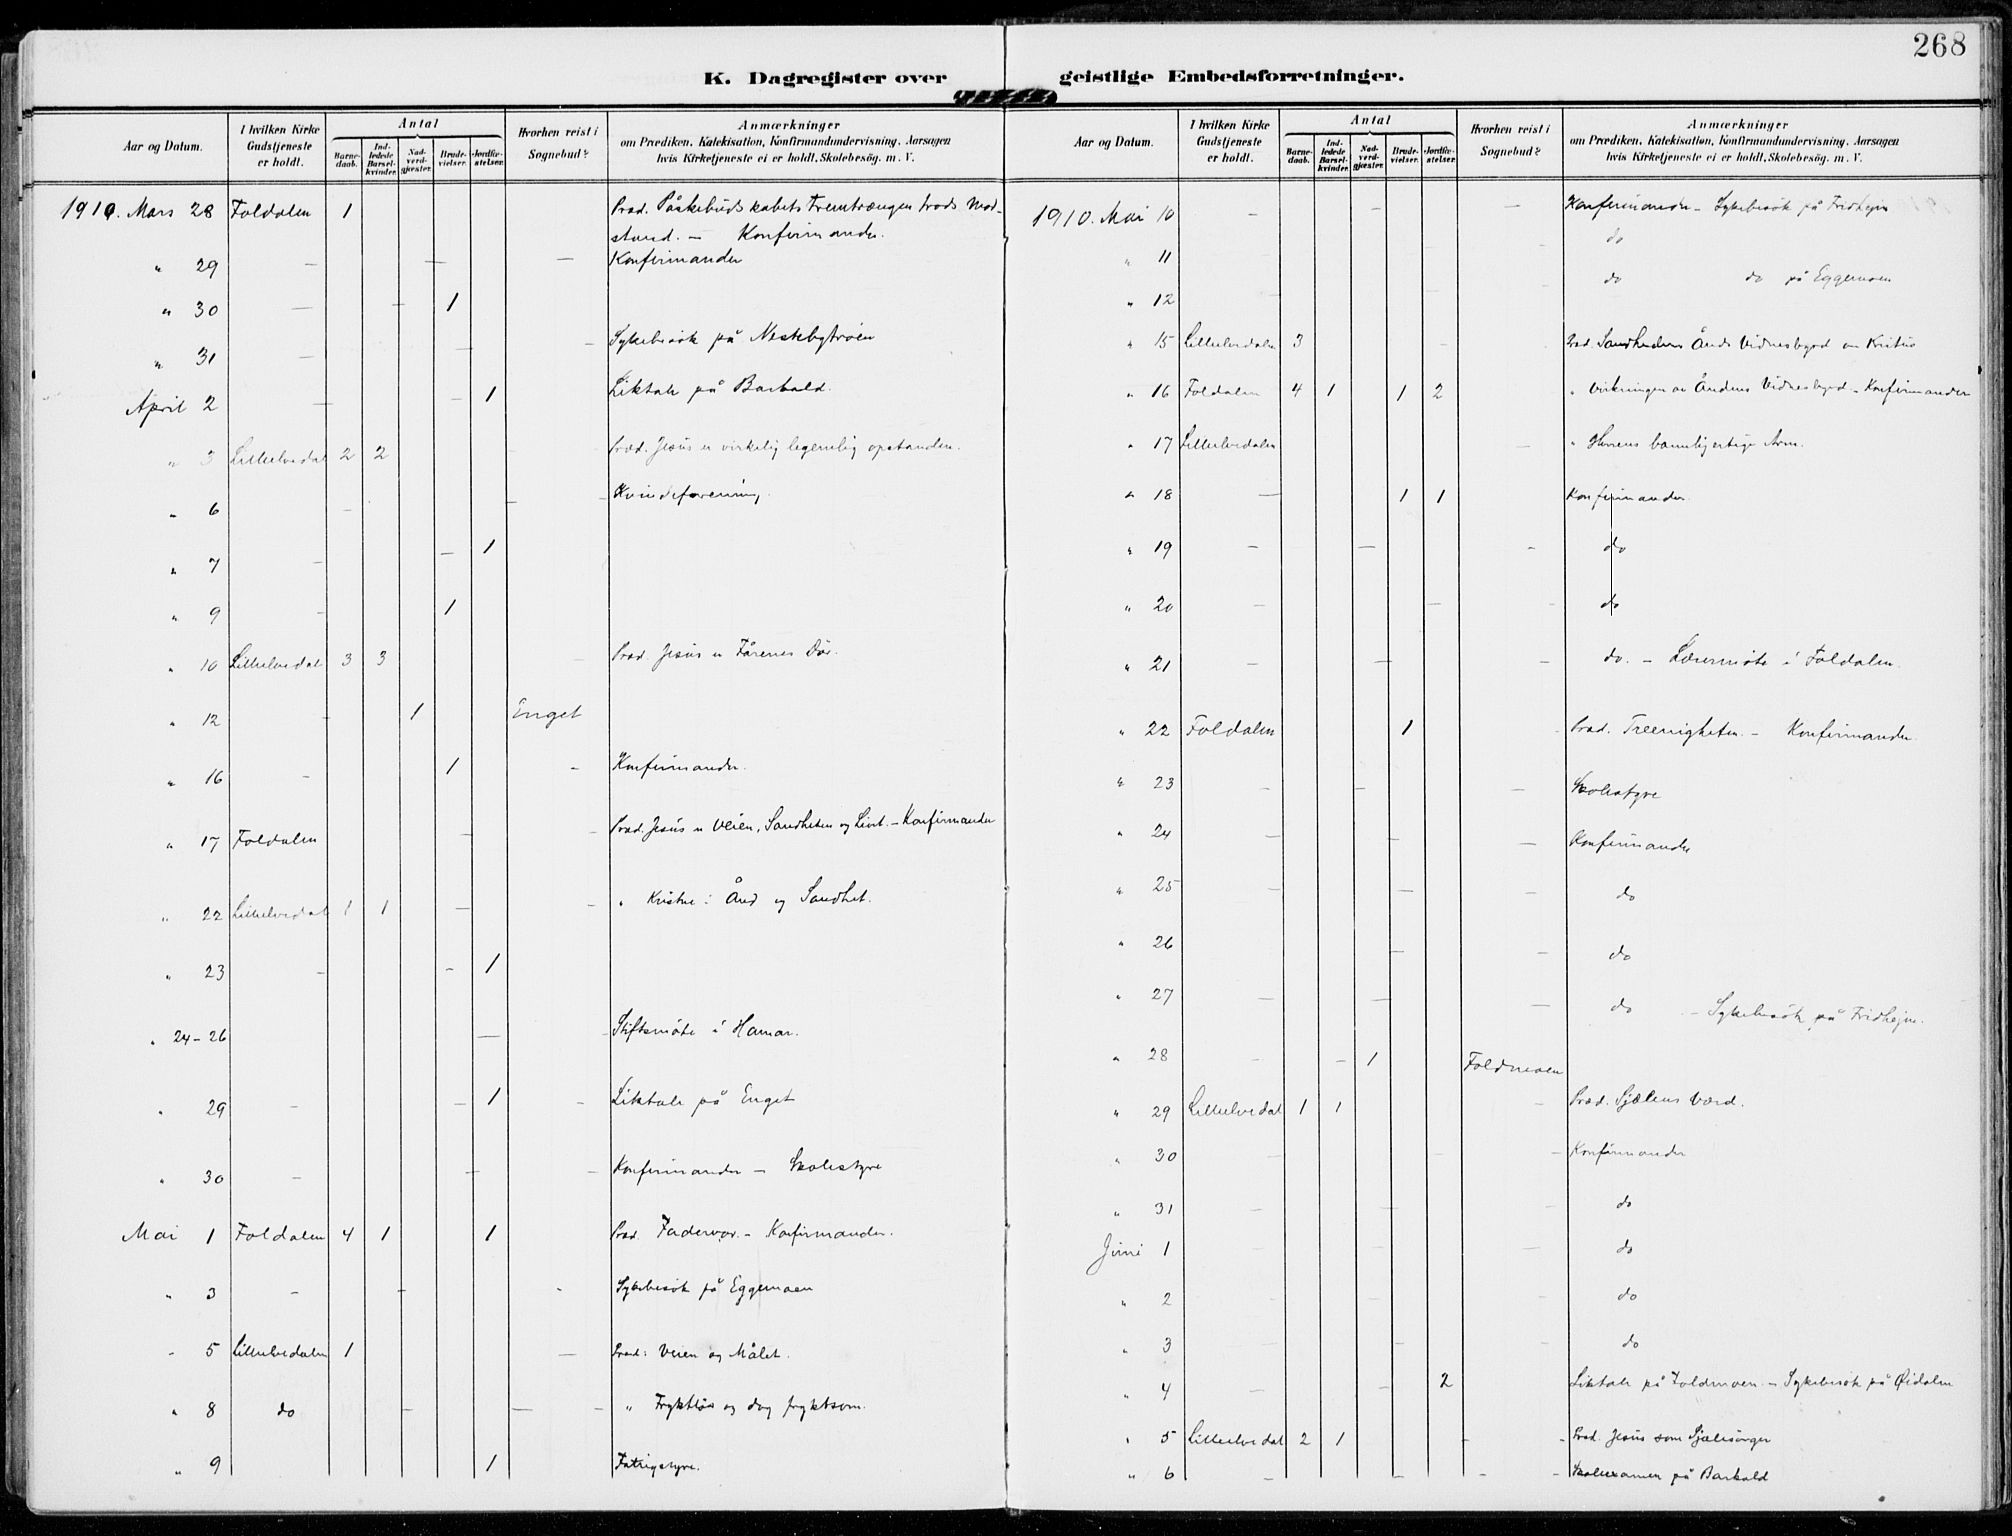 268
K. Dagregister over geistlige Embedsforretninger.
Aar og Datum. I hvilken Kirke Gudstjeneste er holdt. Antal Barnedaab. Indledede Barselkvinder. Nadverdgjester. Brudevielser. Jordfæstelser. Hvorhen reist i Sognebud? Anmærkninger om Prædiken, Katekisation, Konfirmandundervisning, Aarsagen hvis Kirketjeneste ei er holdt, Skolebesög. m. V.
1910. Mars 28 Foldalen 1 Præd. Påskebudskabets Fremtrængen trods Mod-
stand. – Konfirmander.
" 29 — — — Konfirmander
" 30 — — 1
" 31 — — Sykebesök på
April 2 — — 1 Liktale på Barkald.
" 3 Lilleelvedal 2 2 Præd. Jesus er virkelig legemlig opstanden.
" 6 — — — Kvindeforening.
" 7 — — 1
" 9 — 1
" 10 Lilleelvedal 3 3 — Præd. Jesus er Fårenes Dör.
" 12 — 1 Enget
" 16 — 1 — Konfirmander.
" 17 Foldalen — — Præd. Jesus er Veien, Sandheten og Livet. – Konfirmander
" 22 Lilleelvedal 1 1 — — " Kristne i Ånd og Sandhet.
" 23 — — 1
" 24–26 — Stiftsmöte i Hamar.
" 29 — — 1 — Liktale på Enget
" 30 — — — Konfirmander – Skolestyre
Mai 1 Foldalen 4 1 1 Præd. Fadervor. – Konfirmander.
" 3 — — - Sykebesök på Eggemoen
" 5 Lilleelvedalen 1 — Præd: Veien og Målet.
" 8 do — — — " Fryktlös og dog fryktsom.
" 9 1 Fattigstyre.
Aar og Datum. I hvilken Kirke Gudstjeneste er holdt. Antal Barnedaab. Indledede Barselkvinder. Nadverdgjester. Brudevielser. Jordfæstelser. Hvorhen reist i Sognebud? Anmærkninger om Prædiken, Katekisation, Konfirmandundervisning, Aarsagen hvis Kirketjeneste ei er holdt, Skolebesög. m. V.
1910. Mai 10 — — — Konfirmander – Sykebesök på Fridhejm
" 11 do
" 12 do do på Eggemoen
" 15 Lilleelvedalen 3 — - Præd. Sandhedens Ånds Vidnesbyrd om Kristus
" 16 Foldalen 4 1 1 2 " Virkningen av Åndens Vidnesbyrd – Konfirmander
" 17 Lilleelvedalen — " Herrens barmhjertige Arm.
" 18 — 1 1 Konfirmander.
" 19 — — - do
" 20 — — do
" 21 — — — do. – Lærermöte i Foldalen.
" 22 Foldalen 1 Præd. Treenigheten. – Konfirmander.
" 23 — — — Skolestyre
" 24 — — — Konfirmander
" 25 — — — do
" 26 — — do
" 27 — — — do – Sykebesök på Fridhejm.
" 28 — — 1 Foldmoen
" 29 Lilleelvedal 1 1 - Præd. Sjælens Værd.
" 30 — — — Konfirmander
" 31 — — — do
Juni 1 — — — do
" 2 — — — do
" 3 — — — do
" 4 — — 2 Liktale på Foldmoen. – Sykebesök på Øidalen
" 5 Lilleelvedal 2 1 - - Præd. Jesus som Sjælesörger
" 6 — — - - Skoleexamen på Barkald